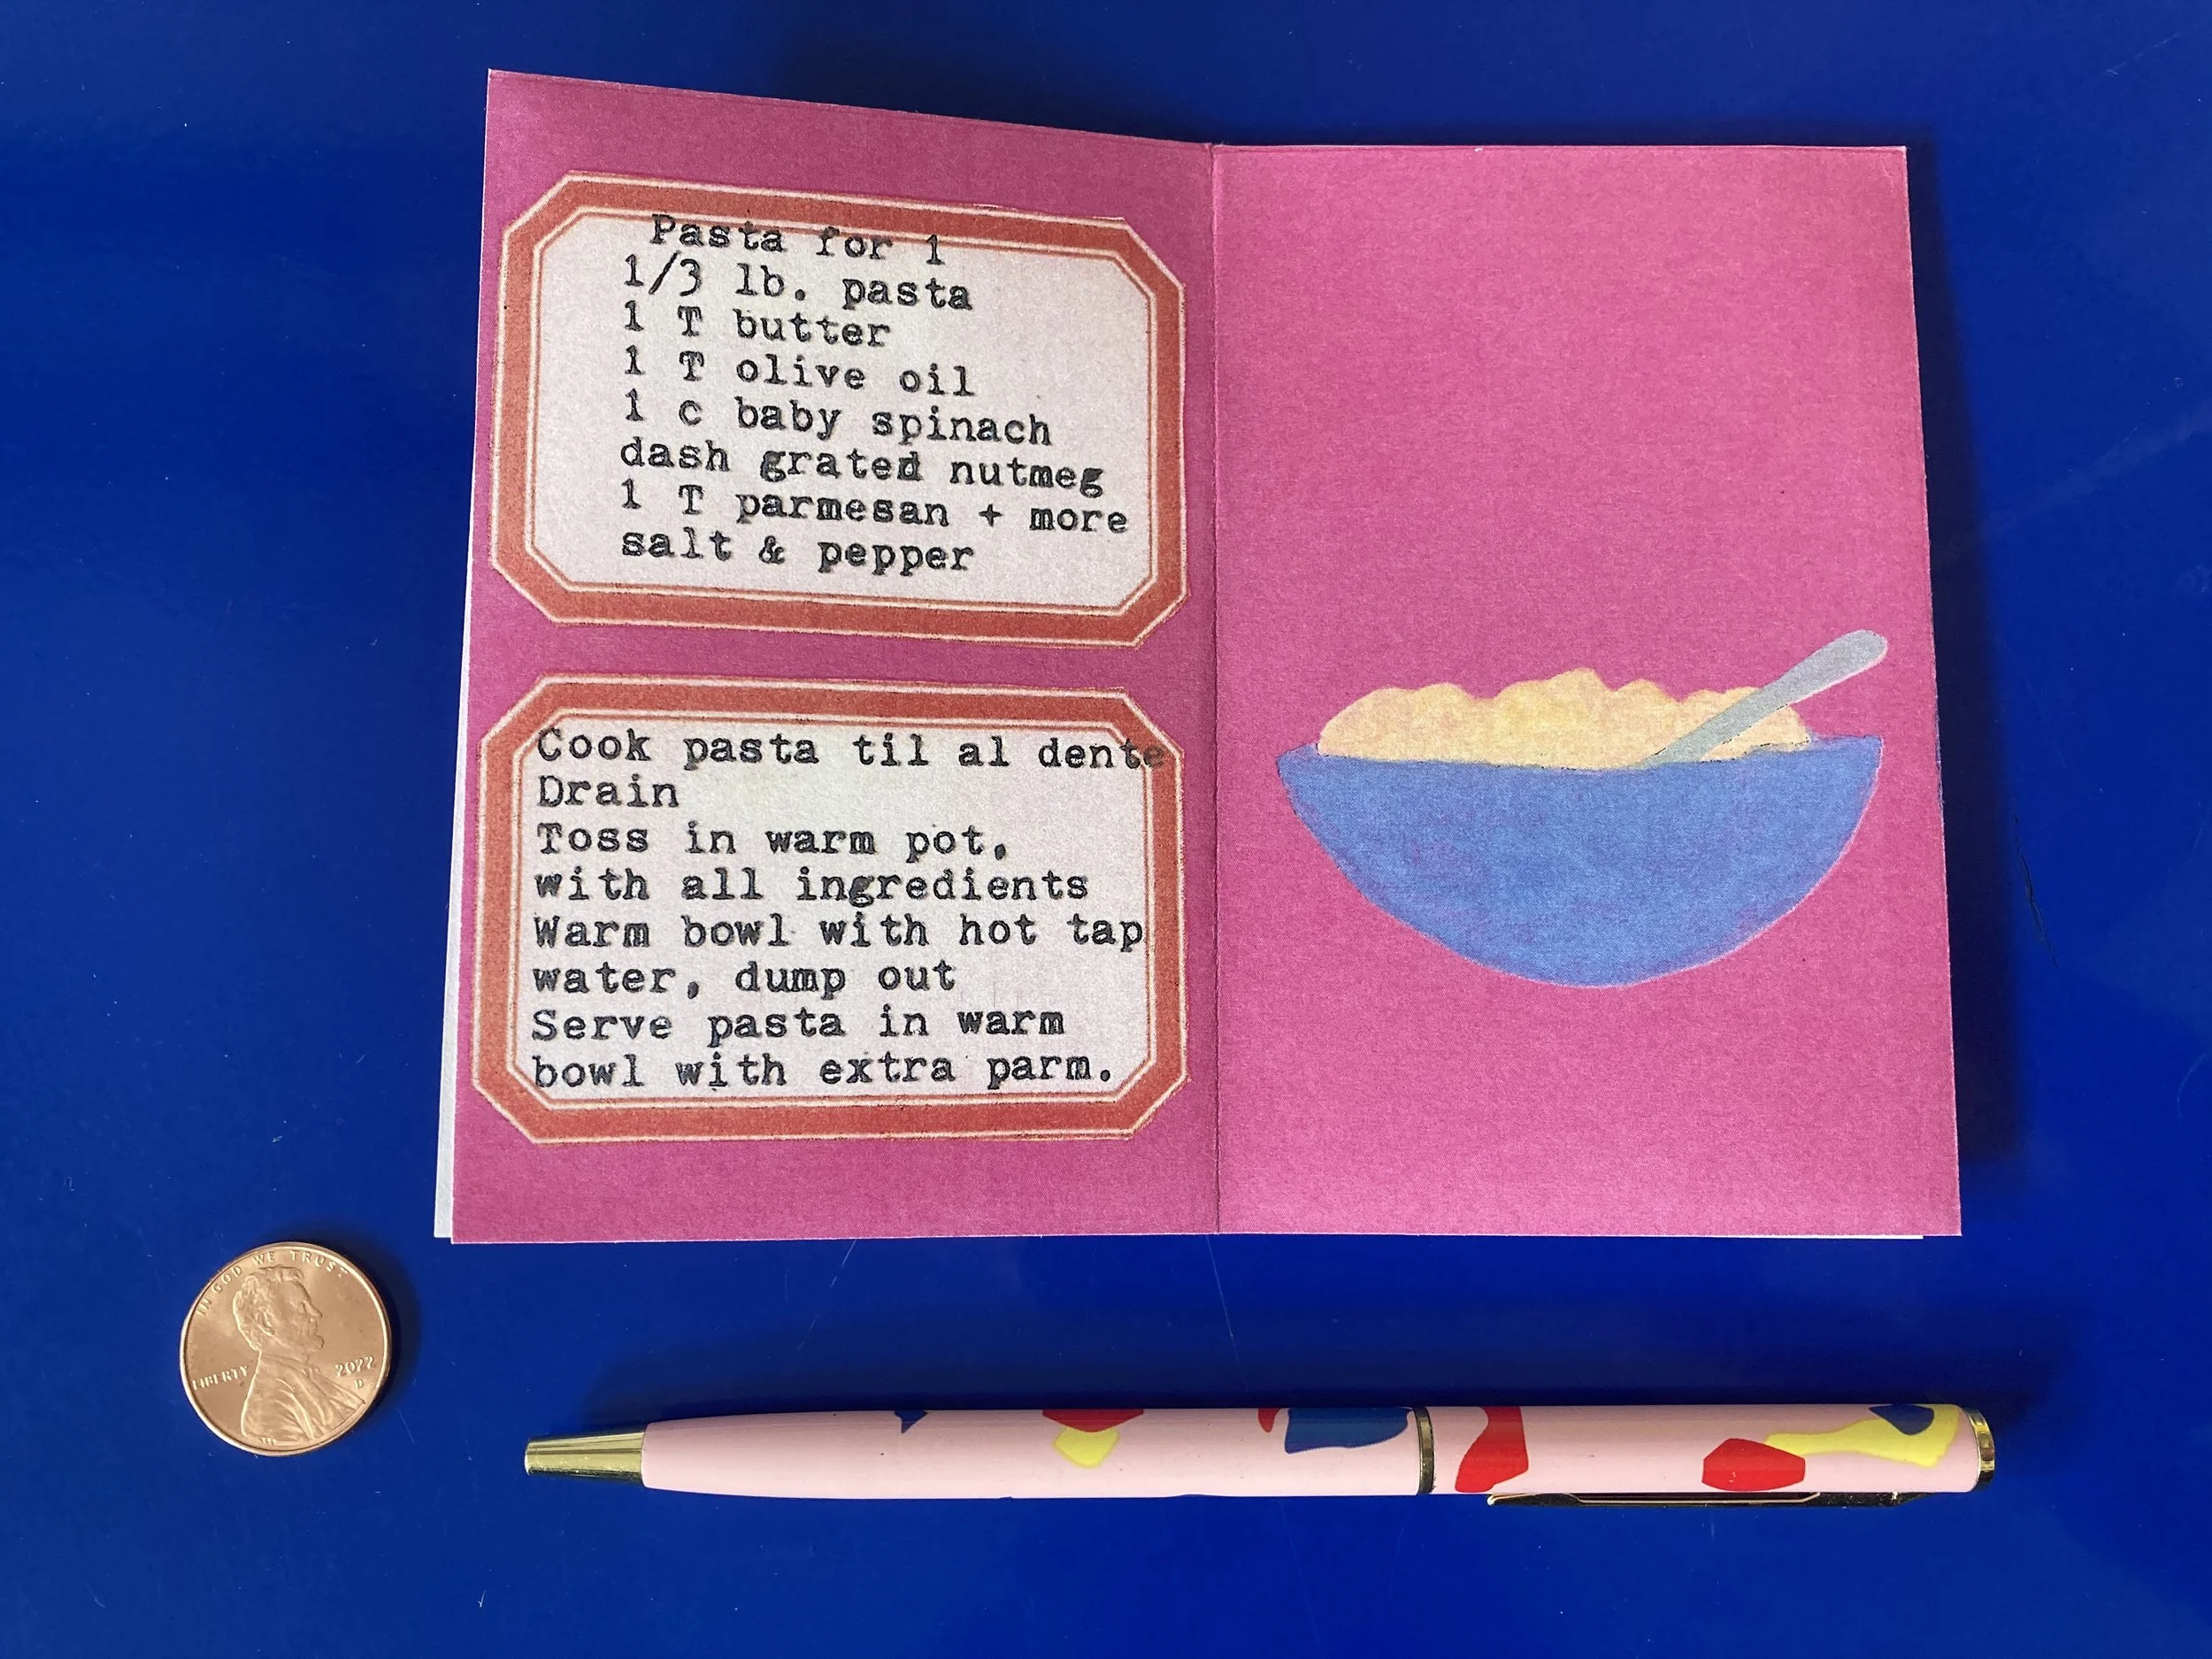 Pasta for 1
1/3 lb. pasta
1 T butter
1 T olive oil
1 c baby spinach
dash grated nutmeg
1 T parmesan + more
salt & pepper
Cook pasta til al dente
Drain
Toss in warm pot,
with all ingredients
Warm bowl with hot tap
water, dump out
Serve pasta in warm
bowl with extra parm.
IN GOD WE TRUST
LIBERTY
2022
D